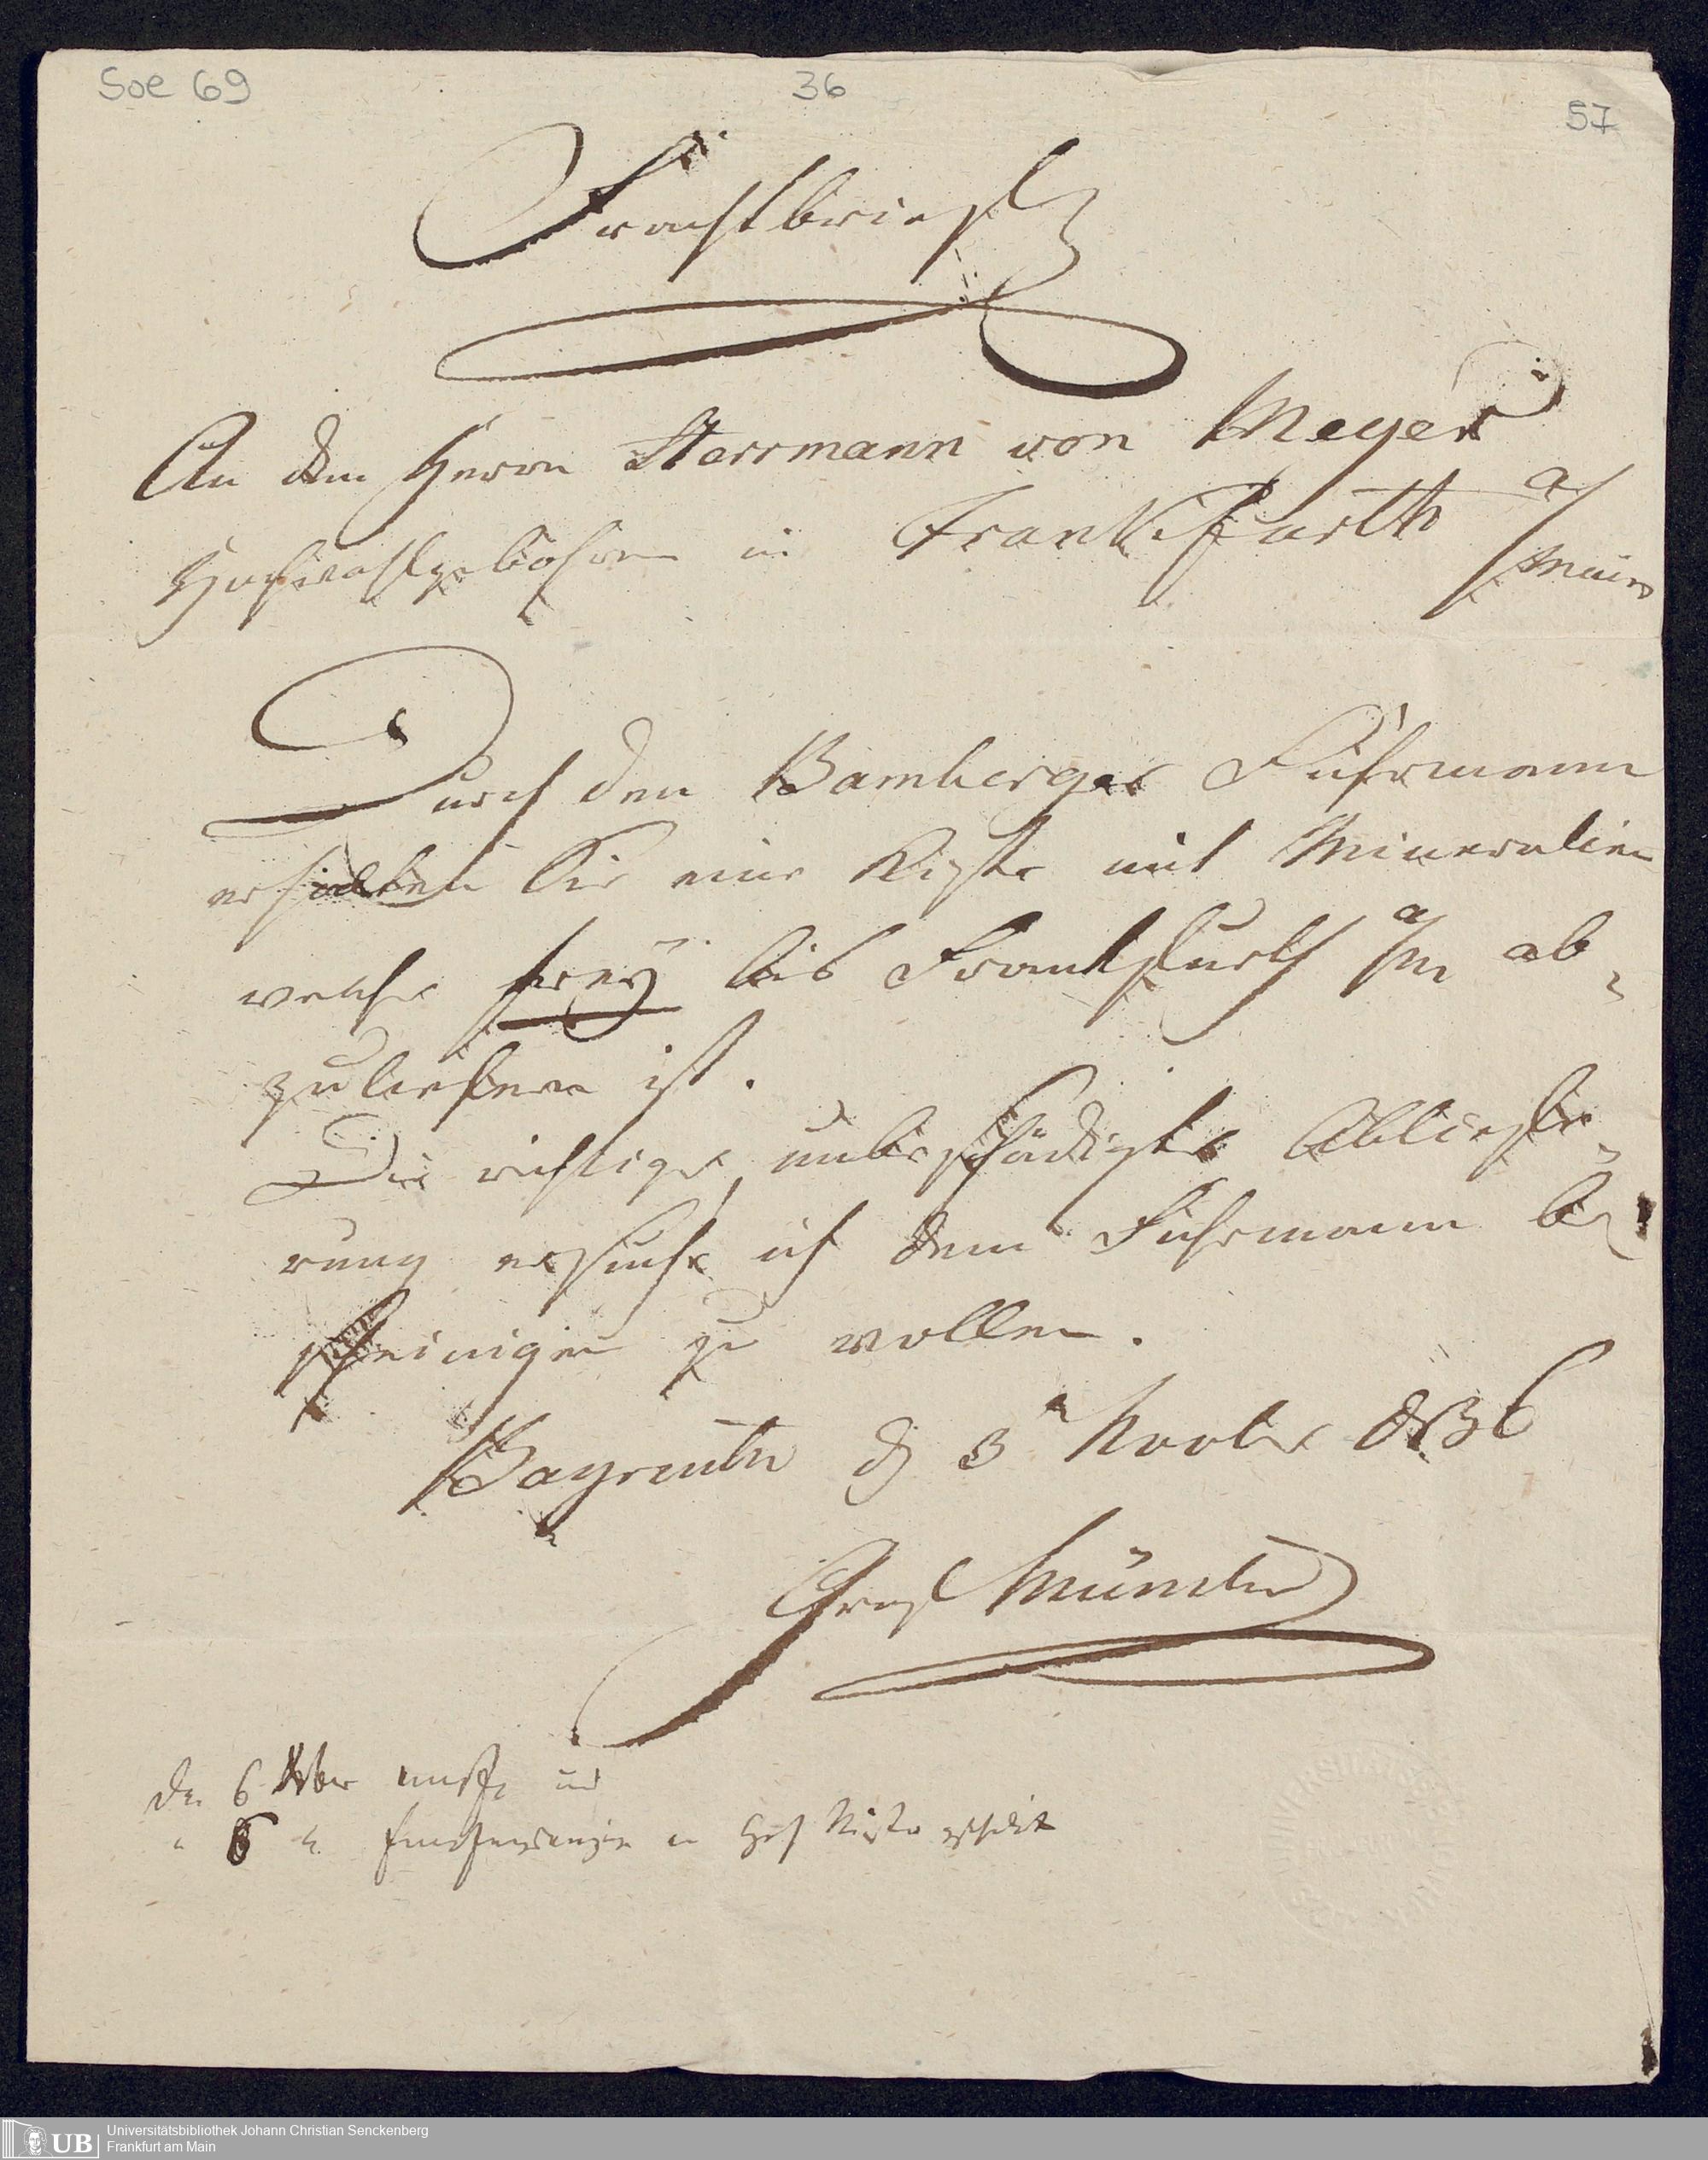 Soe 69 36 57
Frachtbrief
An dem Herrn Herrmann von Meyer
Hochwohlgebohren in Frankfurth a/Main
Durch den Bamberger Fuhrmann
erhalten Sie eine Kiste mit Mineralien
welche frey bis Frankfurth a/M ab-
zuliefern ist.
Die richtige, unbeschädigte Abliefe-
rung ersuche ich dem Fuhrmann be-
scheinigen zu wollen.
Bayreuth d 3n Novbr 1836
Graf Münster
6 und
6 Kiste
Universitätsbibliothek Johann Christian Senckenberg
Frankfurt am Main
UB